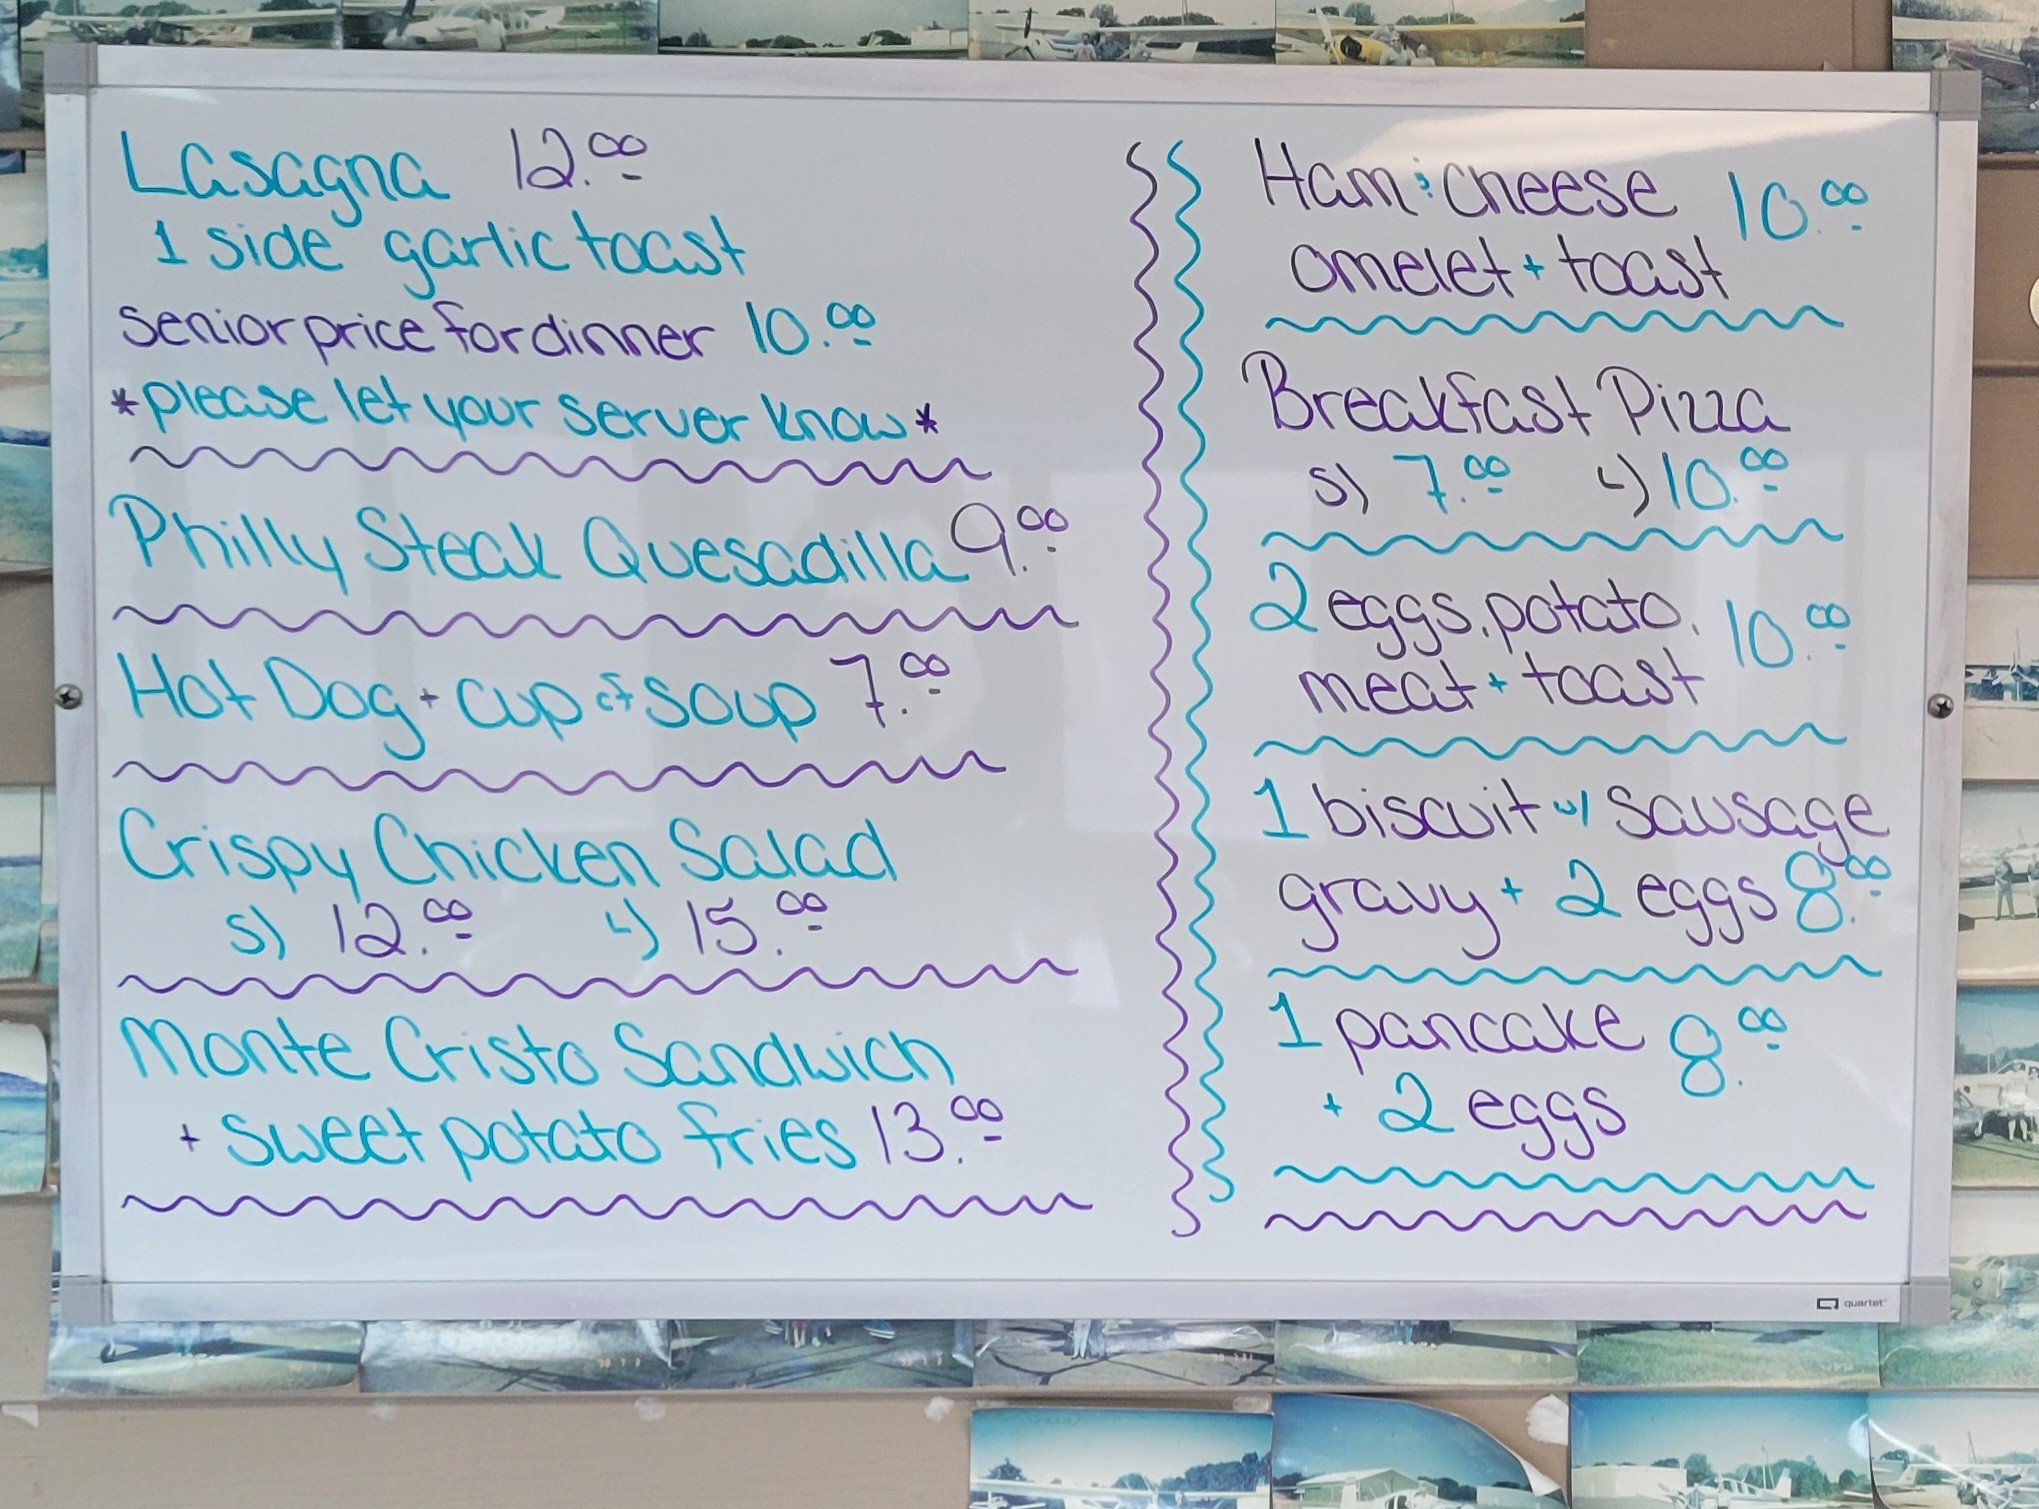 Lasagna 12.00
1 side garlic toast
senior price for dinner 10.00
*please let your server know*
Philly Steak Quesadilla 9.00
Hot Dog + cup of soup 7.00
Crispy Chicken Salad
S) 12.00 L) 15.00
Monte Cristo Sandwich
+ sweet potato fries 13.00
Ham & cheese 10.00
omelet + toast
Breakfast Pizza
S) 7.00 L) 10.00
2 eggs, potato, 10.00
meat + toast
1 biscuit w/ sausage
gravy + 2 eggs 8.00
1 pancake 8.00
+ 2 eggs
quartet